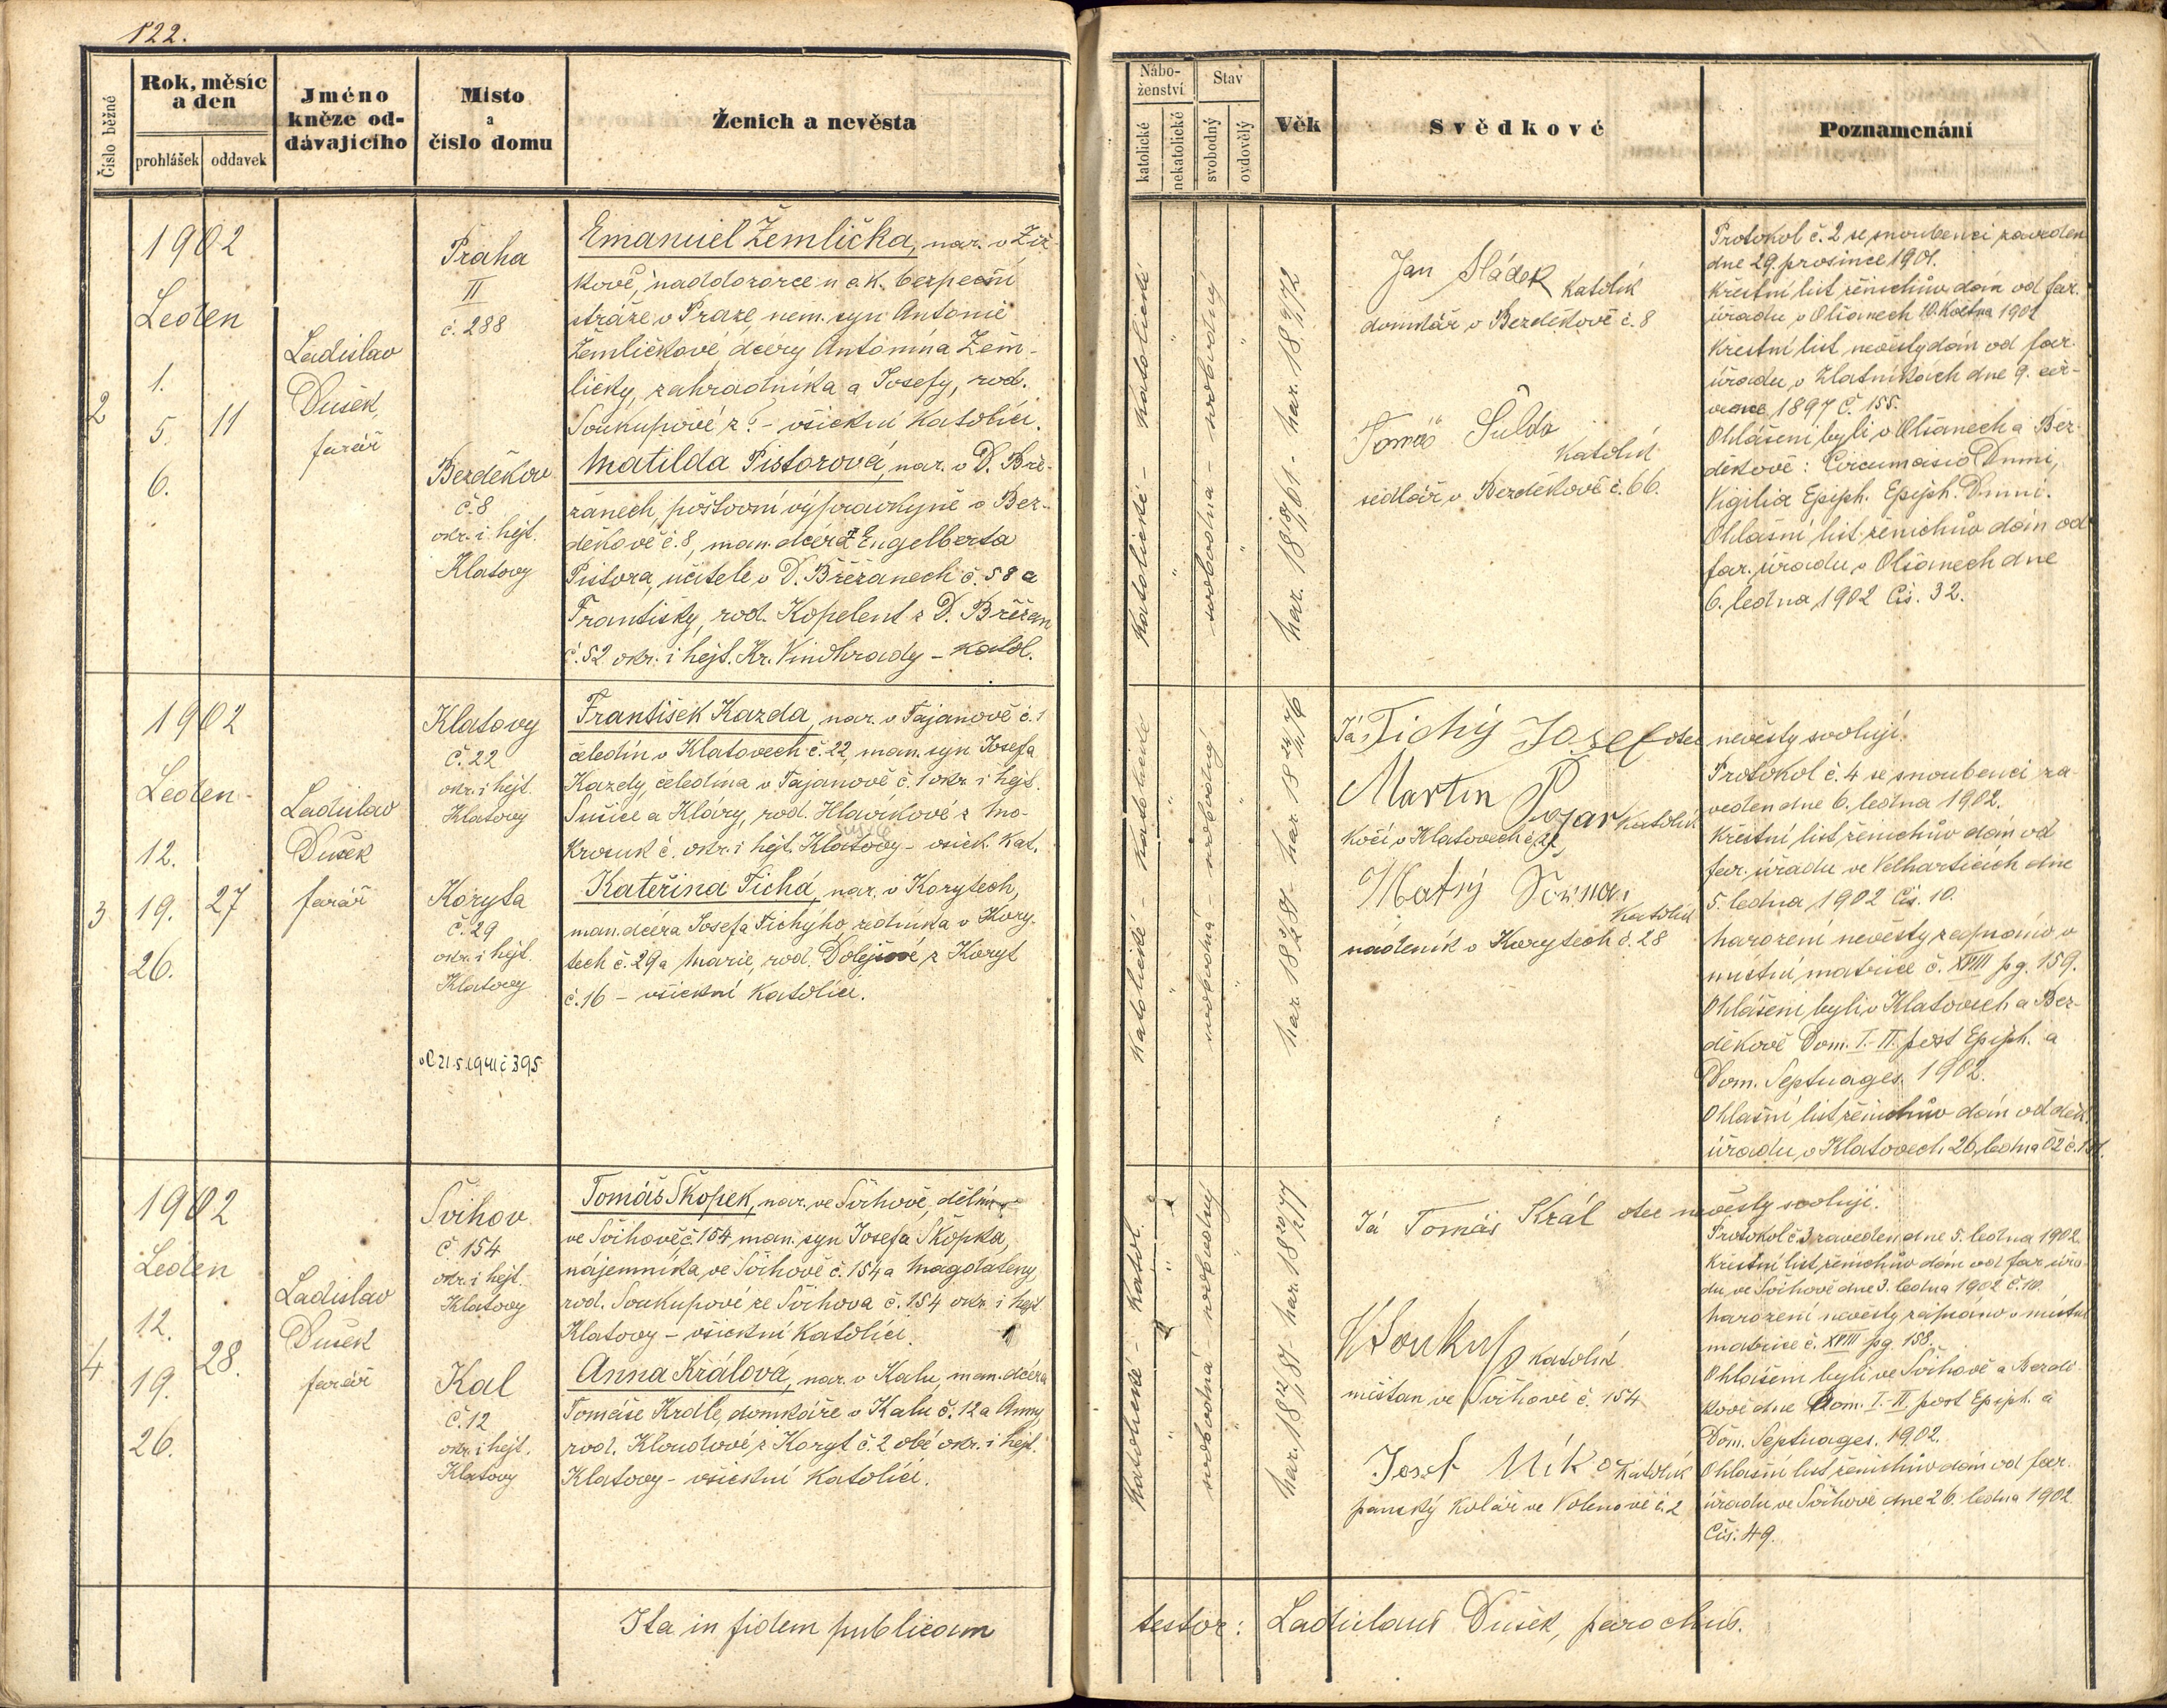 122.
Číslo běžné
Rok, měsíc
a den
prohlášek
oddavek
Jméno
kněze od-
dávajícího
Místo
a
číslo domu
Ženich a nevěsta
Nábo-
ženství
katolické
nekatolické
Stav
svobodný
ovdovělý
Věk
Svědkové
Poznamenání
2
1902
Leden
1.
5.
6.
11
Ladislav
Dušek,
farář
Praha
II
č. 288
Bezděkov
č. 8
okr. i hejt.
Klatovy
Emanuel Žemlička, nar. v Žiž-
kově, naddozorce u c.k. bezpeční
stráže v Praze, nem. syn Antonie
Žemličkove, dcery Antonína Žem-
ličky, zahradníka a Josefy, rod.
Soukupové z ? - všickni katolíci.
Matilda Pistorová, nar. v D. Bře-
žanech, poštovní výpravkyně v Bez-
děkově č. 8, man. dcera † Engelberta
Pistora, učitele v D. Břežanech č. 58 a
Františky, rod. Kopelent z D. Břežan
č. 52 okr. i hejt. Kr. Vinohrady - katol.
katolické - katolické
svobodna - svobodný
nar. 18 61 - nar. 18 72
Jan Sládek katolík
domkář v Bezděkově č. 8
Tomáš Šulda
katolík
sedlář v Bezděkově č. 66.
Protokol č. 2 se snoubenci zaveden
dne 29. prosince 1901.
Křestní list ženichův dán od far.
úřadu v Olšanech 10. Května 1901
Křestní list nevěsty dán od far.
úřadu v Zlatníkach dne 9. čer-
vence 1897 č. 155.
Ohlášeni byli v Olšanech a Bez-
děkově: Circumcisio Dnni,
Vigilia Epiph. Epiph. Dnni.
Ohlašní list ženichův dán od
far. úřadu v Olšanech dne
6. ledna 1902 čís. 32.
3
1902
Leden
12.
19.
26.
27
Ladislav
Dušek
farář
Klatovy
č. 22
okr. i hejt.
Klatovy
Koryta
č. 29
okr. i hejt.
Klatovy
21.5.1941 č 395
František Kazda, nar. v Tajanově č. 1
čeledín v Klatovech č. 22, man. syn Josefa
Kazdy, čeledína v Tajanově č. 1 okr. i hejt.
Sušice a Kláry, rod. Hlavíkové z Mo-
Sušice
krosuk č. okr. i hejt. Klatovy - všick. kat.
Kateřina Tichá, nar. v Korytech,
man. dcera Josefa Tichýho, zedníka v Kory-
tech č. 29 a Marie, rod. Dolejsové z Koryt
č. 16 - všickni katolíci.
katolické - katolické
svobodná - svobodný
nar. 18 81 - nar. 18 76
Já Tichý Josef otec nevěsty svoluji.
Martin Pojar katolík
kočí v Klatovech č.
Matěj
katolík
nádeník v Korytech č. 28
Protokol č. 4 se snoubenci za-
veden dne 6. ledna 1902.
Křestní list ženichův dán od
far. úřadu ve Velharticích dne
5. ledna 1902 čís. 10.
Narození nevěsty zapsáno v
místní matrice č. XVIII pg. 159.
Ohlášeni byli v Klatovech a Bez-
děkově Dom. I.-II. post Epiph. a
Dom. Septuages. 1902.
Ohlašní list ženichův dán od děk.
úřadu v Klatovech 26. ledna 02
4
1902
Leden
12.
19.
26.
28.
Ladislav
Dušek
farář
Švihov
č. 154
okr. i hejt.
Klatovy
Kal
č. 12
okr. i hejt.
Klatovy
Tomáš Škopek, nar. ve Švihově, dělník
ve Švihově č. 154, man. syn Josefa Škopka,
nájemníka, ve Švihově č. 154 a Magdaleny,
rod. Soukupové ze Švihova č. 154 okr. i hejt
Klatovy - všickni katolíci.
Anna Králová, nar. v Kalu, man. dcera
Tomáše Krále, domkáře v Kalu č. 12 a Anny,
rod. Kloudové z Koryt č. 2 obé okr. i hejt.
Klatovy - všickni katolíci.
katolické - katol.
svobodná - svobodný
nar. 18 81 - nar. 18 77
Já Tomáš Král otec nevěsty svoluji.
V Soukup katolík
mištan ve Švihově č. 154
Josef katolík
panský kolář ve Volenově č. 2
Protokol č. 3 zaveden dne 5. ledna 1902.
Křestní list ženichův dán od far. úřa-
du, ve Švihově dne 3. ledna 1902 č. 10.
Narození nevěsty zapsáno v místní
matrice č. XVIII pg. 158.
Ohlášeni byli ve Švihově a Bezdě-
kově dne Dom. I.-II. post Epiph. a
Dom. Septuages. 1902.
Ohlašní list ženichův dán od far.
úřadu ve Švihově dne 26. ledna 1902.
Čís. 49.
Ita in fidem publicam testor: Ladislaus Dušek, parochus.